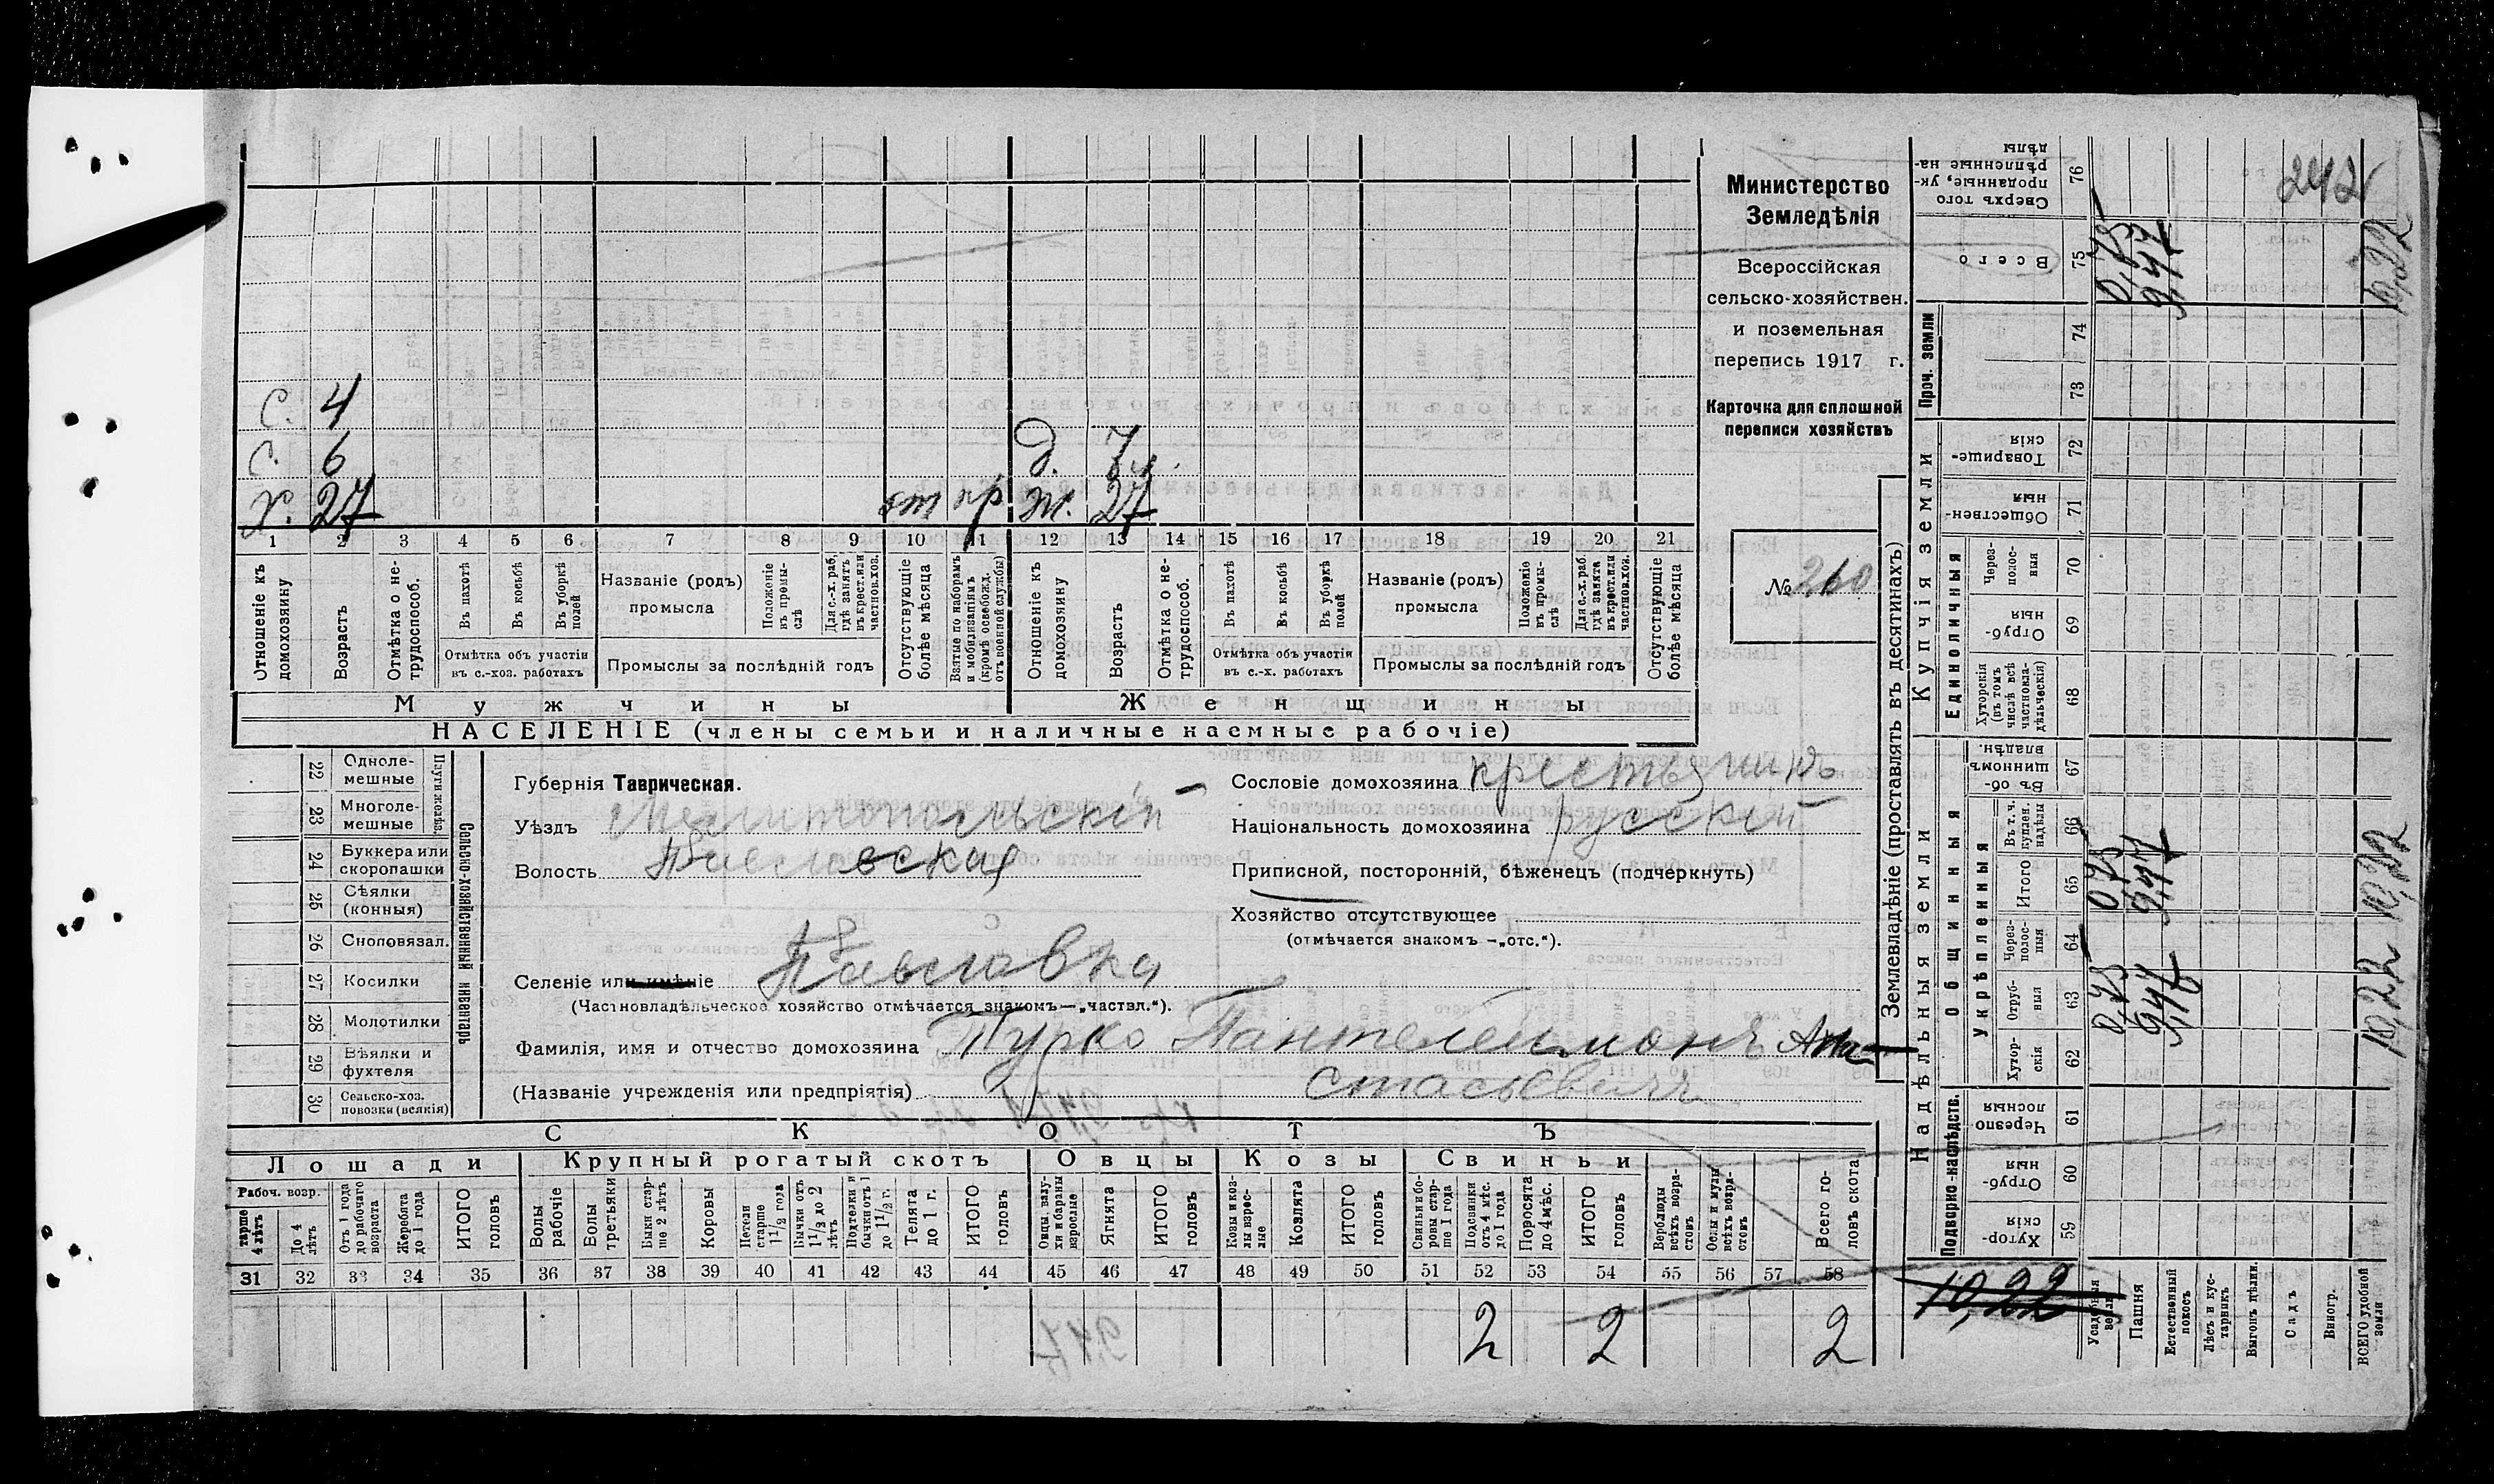 242
Министерство
Земледѣлія
Всероссійская
сельско-хозяйствен.
и поземельная
перепись 1917 г.
Карточка для сплошной
переписи хозяйствъ
№ 260
С. 4
С. 6
Д. 7
х. 27 от пр ж. 27
1 2 3 4 5 6 7 8 9 10 11 12 13 14 15 16 17 18 19 20 21
Отношеніе къ домохозяину
Возрастъ
Отмѣтка о нетрудоспособ.
Въ пахотѣ
Въ косьбѣ
Въ уборкѣ полей
Отмѣтка объ участіи въ с.-хоз. работахъ
Названіе (родъ) промысла
Положеніе въ промыслѣ
Для с.-х. раб. гдѣ занятъ въ крест. или частнов. хоз.
Промыслы за послѣдній годъ
Отсутствующіе болѣе мѣсяца
Взятые по наборамъ и мобилизаціямъ (кромѣ освобожд. отъ военной службы)
Отношеніе къ домохозяину
Возрастъ
Отмѣтка о нетрудоспособ.
Въ пахотѣ
Въ косьбѣ
Въ уборкѣ полей
Отмѣтка объ участіи въ с.-х. работахъ
Названіе (родъ) промысла
Положеніе въ промыслѣ
Для с.-х. раб. гдѣ занята въ крест. или частнов. хоз.
Промыслы за послѣдній годъ
Отсутствующіе болѣе мѣсяца
Мужчины Женщины
НАСЕЛЕНІЕ (члены семьи и наличные наемные рабочіе)
22 Однолемешные
23 Многолемешные
24 Буккера или скоропашки
25 Сѣялки (конныя)
26 Сноповязал.
27 Косилки
28 Молотилки
29 Вѣялки и фухтеля
30 Сельско-хоз. повозки (всякія)
Сельско-хозяйственный инвентарь
Губернія Таврическая.
Уѣздъ Мелитопольскій
Волость Павловская
Селеніе или имѣніе Павловка
(Частновладѣльческое хозяйство отмѣчается знакомъ—„частвл.“).
Сословіе домохозяина крестьянинъ
Національность домохозяина русскій
Приписной, посторонній, бѣженецъ (подчеркнуть)
Хозяйство отсутствующее
(отмѣчается знакомъ —„отс.“).
Фамилія, имя и отчество домохозяина Турко Пантелеимонъ Ана-
(Названіе учрежденія или предпріятія) стасьевичъ
СКОТЪ
Лошади Крупный рогатый скотъ Овцы Козы Свиньи
Рабоч. возр.
старше 4 лѣтъ
До 4 лѣтъ
Отъ 1 года до рабочаго возраста
Жеребята до 1 года
ИТОГО головъ
Волы рабочіе
Волы третьяки
Быки старше 2 лѣтъ
Коровы
Нетели старше 1 1/2 года
Бычки отъ 1 1/2 до 2 лѣтъ
Подтелки и бычки отъ 1 до 1 1/2 г.
Телята до 1 г.
ИТОГО головъ
Овцы, валухи и бараны взрослые
Ягнята
ИТОГО головъ
Козы и козлы взрослые
Козлята
ИТОГО головъ
Свиньи и боровы старше 1 года
Подсвинки отъ 4 мѣс. до 1 года
Поросята до 4 мѣс.
ИТОГО головъ
Верблюды всѣхъ возрастовъ
Ослы и мулы всѣхъ возрастовъ
Всего головъ скота
31 32 33 34 35 36 37 38 39 40 41 42 43 44 45 46 47 48 49 50 51 52 53 54 55 56 57 58
2 2 2
Землевладѣніе (проставлять въ десятинахъ)
Надѣльныя земли Купчія земли Проч. земли
Подворно-наслѣдств.
Общинныя
Укрѣпленныя
Единоличныя
59 Хуторскія
60 Отрубныя
61 Черезполосныя
62 Хуторскія
63 Отрубныя 0,75 9,47 10,22
64 Черезполосныя
65 Итого 0,75 9,47 10,22
66 Въ т. ч. куплен. надѣлы
67 Въ общинномъ владѣн.
68 Хуторскія (въ томъ числѣ всѣ частновладѣльческія)
69 Отрубныя
70 Черезполосныя
71 Общественныя
72 Товарищескія
73
74
75 Всего 0,75 9,47 10,22
76 Сверхъ того проданные, укрѣпленные надѣлы
10,22
Усадебныя земли
Пашня
Естественный покосъ
Лѣсъ и кустарникъ
Выгонъ цѣлин.
Садъ
Виногр.
ВСЕГО удобной земли